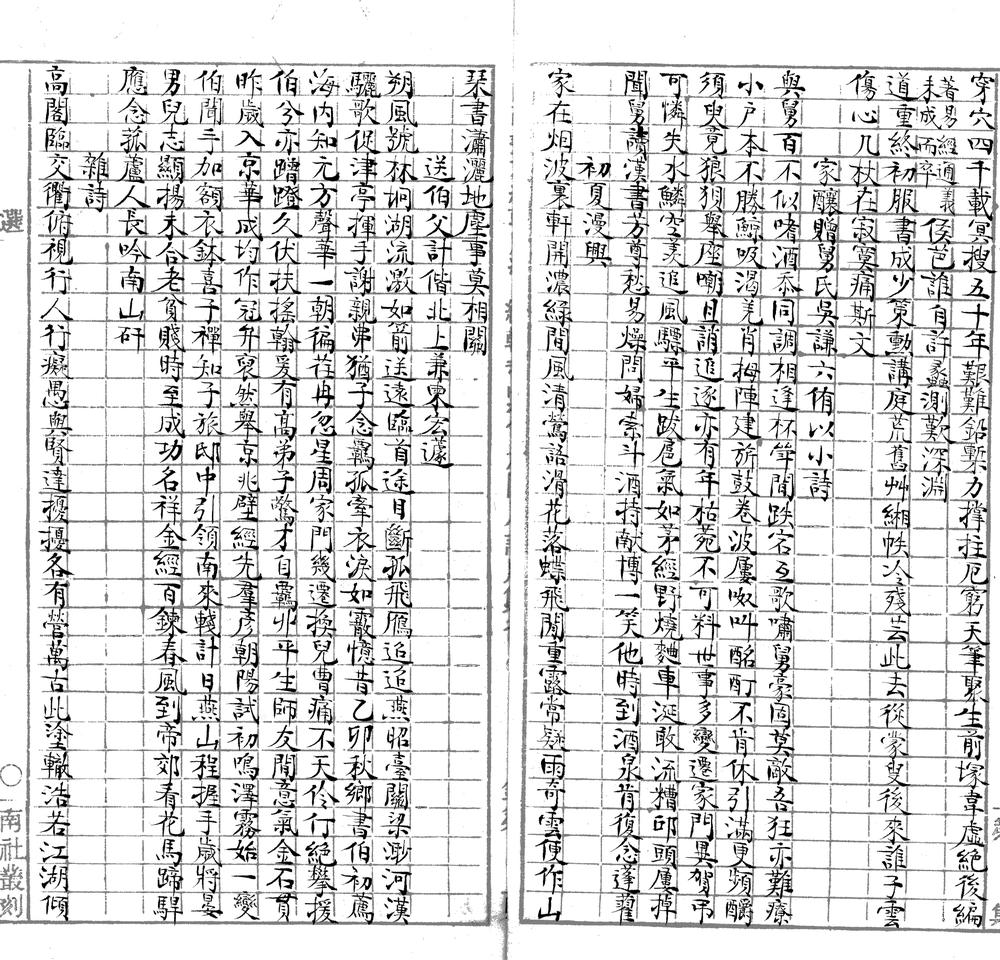 穿穴四千載冥搜五十年艱難鉛槧力撐拄厄窮天筆聚生前塚韋虛絕後編
著易經通義
未成而卒
侯芭誰有許蠡測歎深淵
道重終初服書成少策勳講庭荒舊艸緗帙冷殘芸此去從蒙叟後來誰子雲
傷心几杖在寂寞痛斯文
家釀贈舅氏吳謙六侑以小詩
與舅百不似嗜酒忝同調相逢杯斝間跌宕互歌嘯舅豪固莫敵吾狂亦難療
小戶本不勝鯨吸渴羌肖拇陣建旂鼓卷波屢呶叫酩酊不肯休引滿更頻釂
須臾竟狼狽舉座嘲且誚追逐亦有年枯菀不可料世事多變遷家門異賀弔
可憐失水鱗空羨追風驃平生跋扈氣如茅經野燒麯車涎敢流糟邱頭屢掉
聞舅讀漢書芳尊愁易燥問婦索斗酒持献博一笑他時到酒泉肯復念蓬藋
初夏漫興
家在烟波裏軒開濃綠間風清鶯語滑花落蝶飛閒重露常疑雨奇雲便作山
琹書瀟灑地塵事莫相關
送伯父計偕北上兼柬玄蘧
朔風號林垌湖流激如箭送遠臨首途目斷孤飛鴈迢迢燕昭臺關梁渺河漢
驪歌促津亭揮手謝親串猶子念羈孤牽衣淚如霰憶昔乙卯秋鄉書伯初薦
海内知元方聲華一朝徧荏苒忽星周家門幾遷換兒曹痛不天伶仃絕攀援
伯兮亦蹭蹬久伏扶搖翰爰有高弟子驚才自羈丱平生師友間意氣金石貫
昨歲入京華成均作冠弁裒然舉京兆壁經先羣彥朝陽試初鳴澤霧始一變
伯聞手加額衣鉢喜子禪知子旅邸中引領南來轅計日燕山程握手歲將晏
男兒志顯揚未合老貧賤時至成功名祥金經百鍊春風到帝郊看花馬蹄騂
應念菰廬人長吟南山矸
雜詩
高閣臨交衢俯視行人行癡愚與賢達擾擾各有營萬古此塗轍浩若江湖傾
選
○
南社叢刻
集